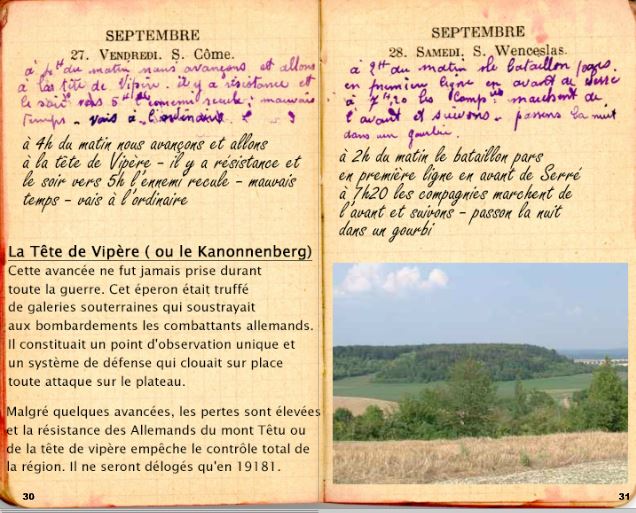 SEPTEMBRE
27. VENDREDI. S. Côme.
à 4ht du matin nous avançons et allons
à la tête de Vipère. il y a résistance et
le soir vers 5ht l'ennemi recule; mauvais
temps - vais à l'ordinaire
à 4h du matin nous avançons et allons
à la tête de Vipère - il y a résistance et
le soir vers 5h l'ennemi recule - mauvais
temps - vais à l'ordinaire
La Tête de Vipère ( ou le Kanonnenberg)
Cette avancée ne fut jamais prise durant
toute la guerre. Cet éperon était truffé
de galeries souterraines qui soustrayait
aux bombardements les combattants allemands.
Il constituait un point d'observation unique et
un système de défense qui clouait sur place
toute attaque sur le plateau.
Malgré quelques avancées, les pertes sont élevées
et la résistance des Allemands du mont Têtu ou
de la tête de vipère empêche le contrôle total de
la région. Il ne seront délogés qu'en 19181.
30
SEPTEMBRE
28. SAMEDI. S. Wenceslas.
à 2ht du matin le bataillon pars
en première ligne en avant de
à 7h20 les Comp marchent de
l'avant et suivons - passons la nuit
dans un gourbi
à 2h du matin le bataillon pars
en première ligne en avant de Serré
à 7h20 les compagnies marchent de
l'avant et suivons - passon la nuit
dans un gourbi
31